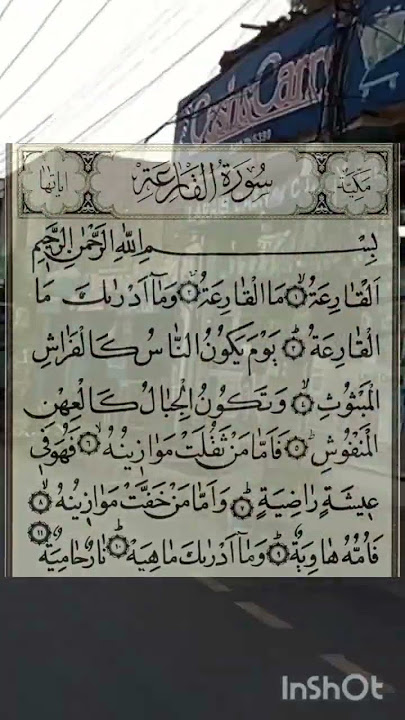 Carry
مكية سورة القارعة اياتها
بِسْمِ اللهِ الرَّحْمٰنِ الرَّحِيْمِ
اَلْقَارِعَةُ ۙ﴿۱﴾ مَا الْقَارِعَةُ ۚ﴿۲﴾ وَمَاۤ اَدْرٰىكَ مَا
الْقَارِعَةُ ؕ﴿۳﴾ يَوْمَ يَكُوْنُ النَّاسُ كَالْفَرَاشِ
الْمَبْثُوْثِ ۙ﴿۴﴾ وَتَكُوْنُ الْجِبَالُ كَالْعِهْنِ
الْمَنْفُوْشِ ؕ﴿۵﴾ فَاَمَّا مَنْ ثَقُلَتْ مَوَازِيْنُهٗ ۙ﴿۶﴾ فَهُوَ فِيْ
عِيْشَةٍ رَّاضِيَةٍ ؕ﴿۷﴾ وَاَمَّا مَنْ خَفَّتْ مَوَازِيْنُهٗ ۙ﴿۸﴾
فَاُمُّهٗ هَاوِيَةٌ ؕ﴿۹﴾ وَمَاۤ اَدْرٰىكَ مَا هِيَهْ ؕ﴿۱۰﴾ نَارٌ حَامِيَةٌ ﴿۱۱﴾
InShOt